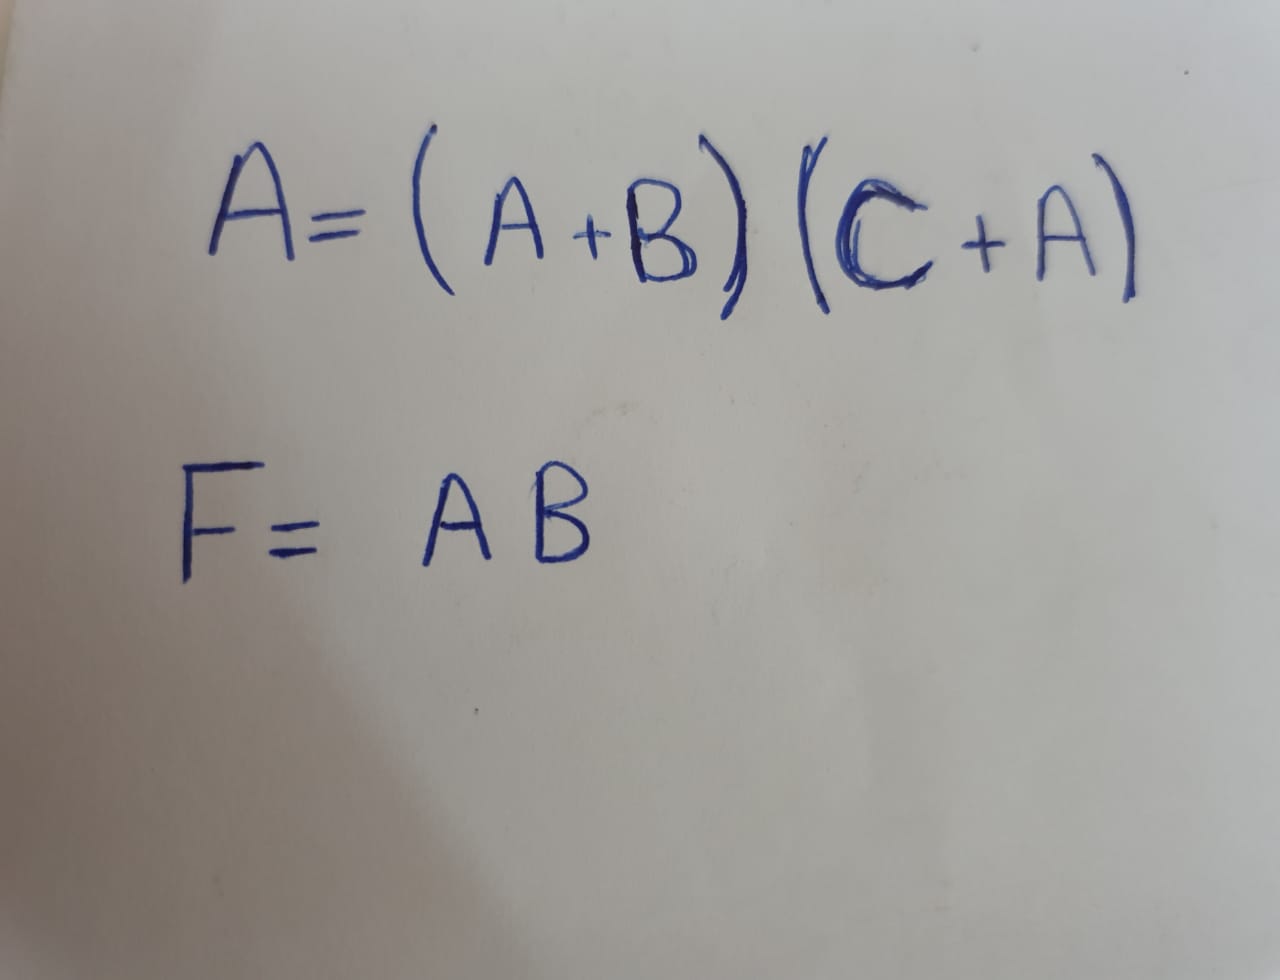 A= (A+B) (C+A)
F= AB